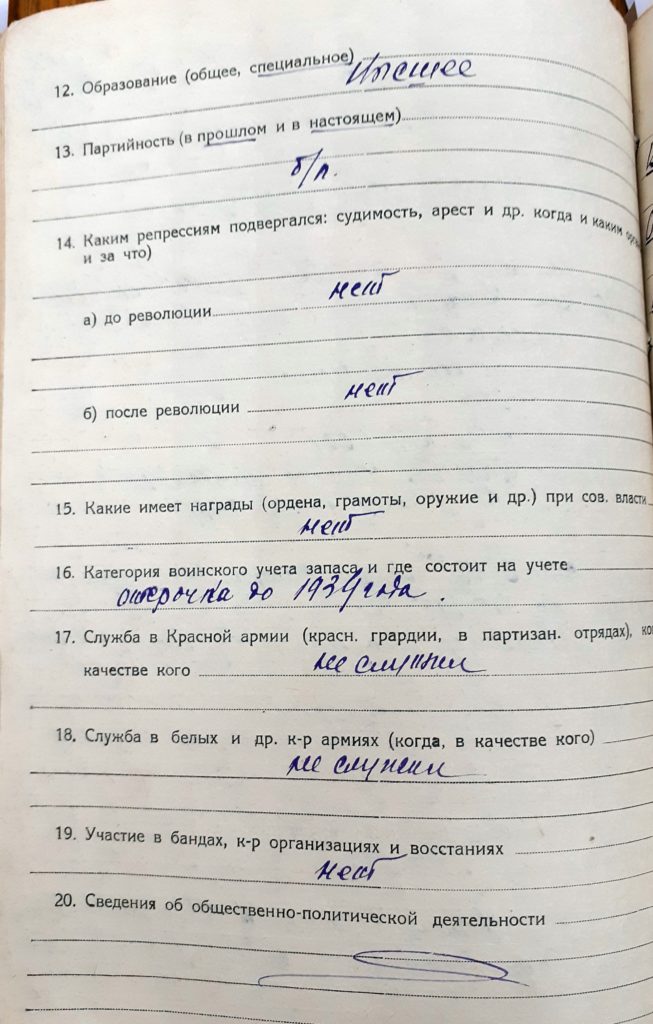 12. Образование (общее, специальное) Высшее
13. Партийность (в прошлом и в настоящем)
б/п.
14. Каким репрессиям подвергался: судимость, арест и др. когда и каким
и за что)
нет
а) до революции
нет
б) после революции
15. Какие имеет награды (ордена, грамоты, оружие и др.) при сов. власти
нет
16. Категория воинского учета запаса и где состоит на учете
отсрочка до 1939 года.
17. Служба в Красной армии (красн. грардии, в партизан. отрядах),
качестве кого не служил
18. Служба в белых и др. к-р армиях (когда, в качестве кого)
не служил
19. Участие в бандах, к-р организациях и восстаниях
нет
20. Сведения об общественно-политической деятельности